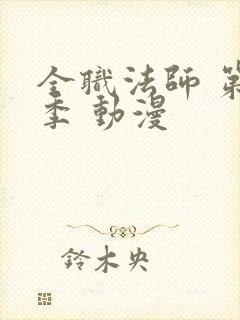 全職法師 第
季 動漫
鈴木央